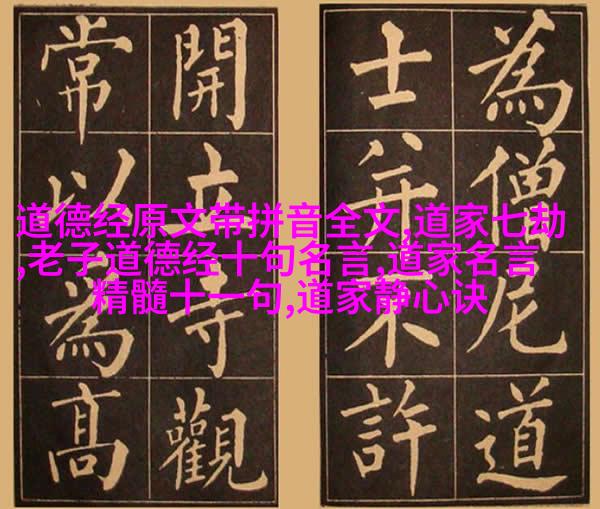 為僧尼道
士并不許
開立寺觀
常以為高
道德经原文带拼音全文,道家七劫
,老子道德经十句名言,道家名言
精髓十一句,道家静心诀